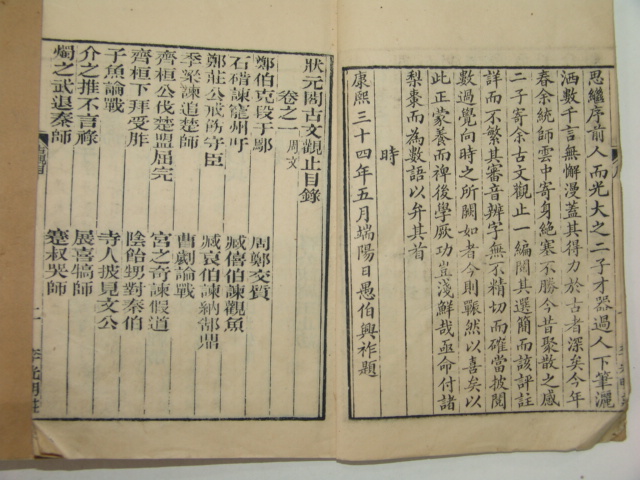 思繼序前人而光大之二子才器過人下筆灑
洒數千言無懈漫蓋其得力於古者深矣今年
春余統師雲中寄身絶塞不勝今昔聚散之感
二子寄余古文觀止一編閱其選簡而該評註
詳而不繁其審音辨字無不精切而確當披閱
數過覺向時之所闕如者今則釋然以喜矣以
此正蒙養而裨後學厥功豈淺鮮哉亟命付諸
梨棗而為數語以弁其首
時
康熙三十四年五月端陽日愚伯興祚題
狀元閣古文觀止目錄
卷之一 周文
鄭伯克段于鄢
周鄭交質
石碏諫寵州吁
臧僖伯諫觀魚
鄭莊公戒飭守臣
臧哀伯諫納郜鼎
季梁諫追楚師
曹劌論戰
齊桓公伐楚盟屈完
宮之奇諫假道
齊桓下拜受胙
陰飴甥對秦伯
子魚論戰
寺人披見文公
介之推不言祿
展喜犒師
燭之武退秦師
蹇叔哭師
二
李光明莊